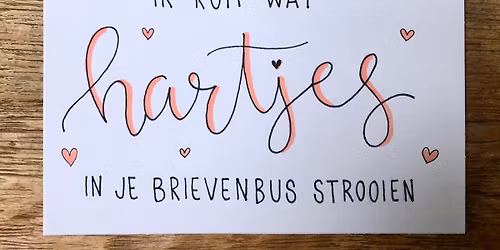 IK KOM WAT
hartjes
IN JE BRIEVENBUS STROOIEN